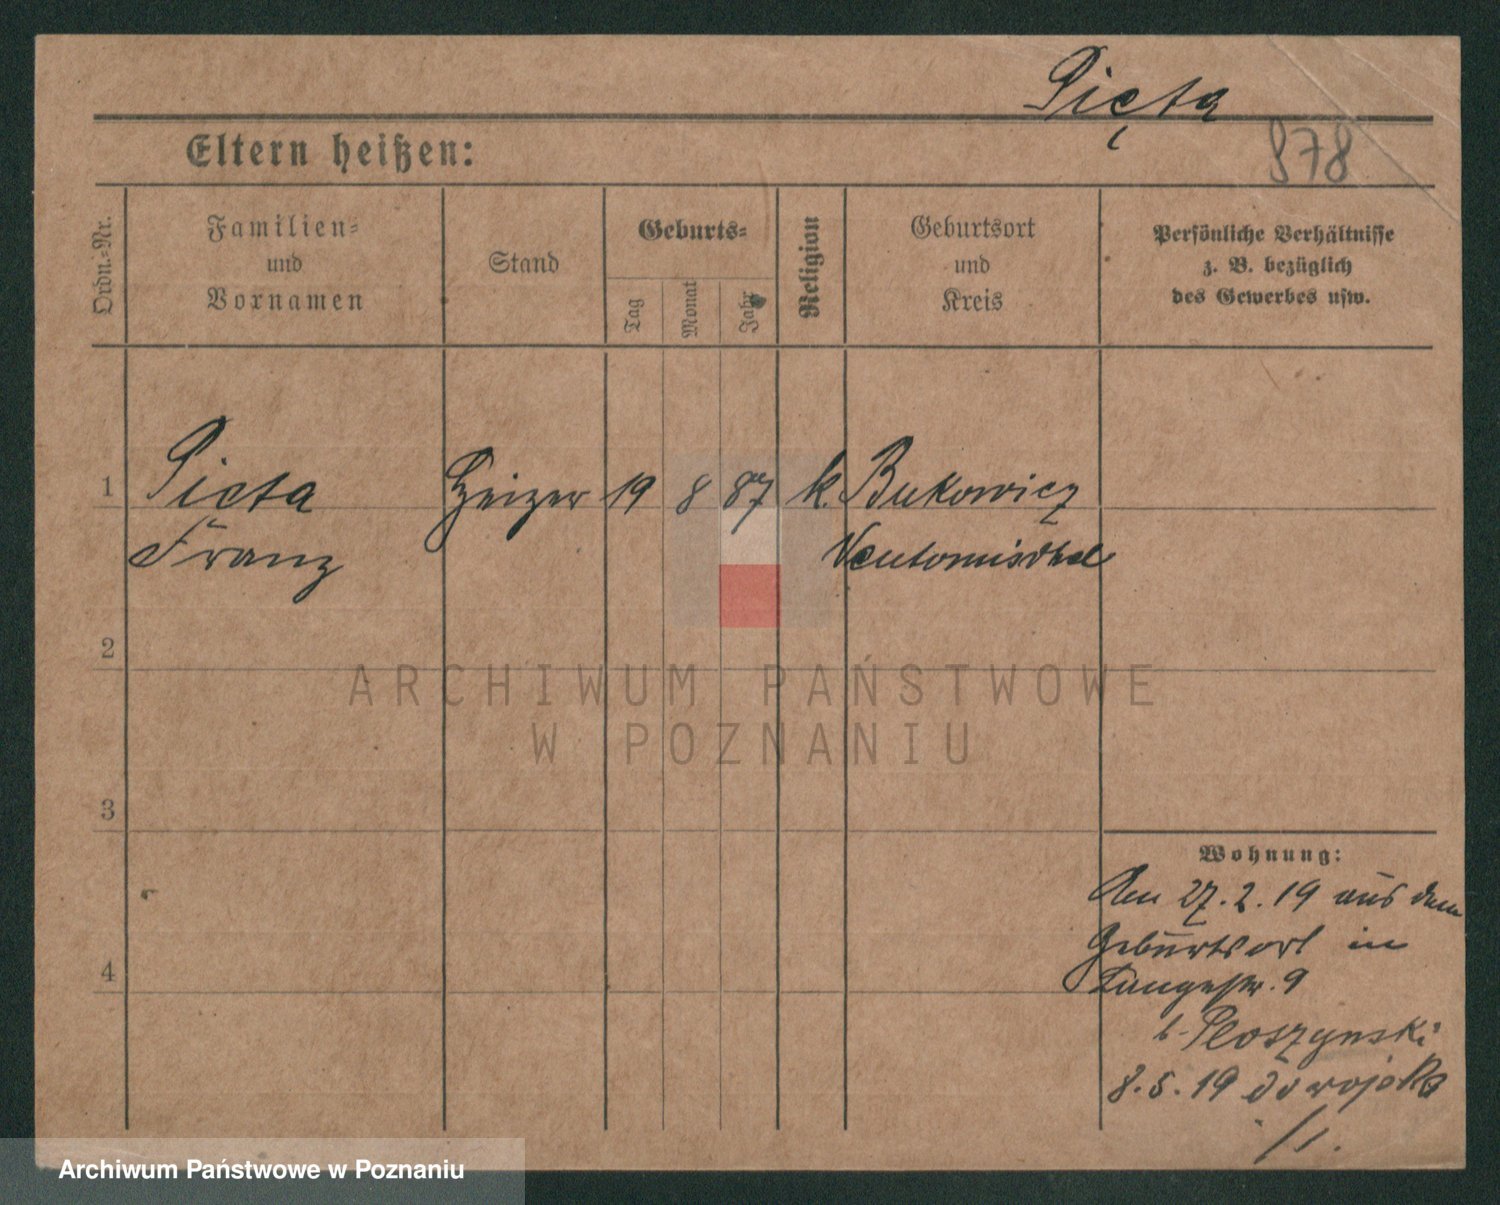 Pięta
878
Eltern heißen:
Ordn.-Nr.
Familien-
und
Vornamen
Stand
Geburts-
Tag
Monat
Jahr
Religion
Geburtsort
und
Kreis
Persönliche Verhältnisse
z. B. bezüglich
des Gewerbes usw.
1 Pieta Heizer 19 8 87 k. Bukowiec
Franz Neutomischel
2
ARCHIWUM PAŃSTWOWE
W POZNANIU
3
Wohnung:
Am 27.2.19 aus dem
Geburtsort in
Langestr. 9
b. Ploszynski
8.5.19 do wojska
4
Archiwum Państwowe w Poznaniu